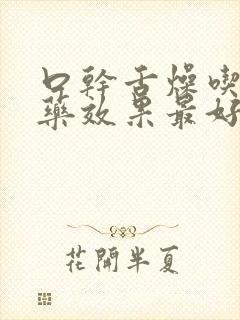 口幹舌燥喫
藥效果最好
花開半夏